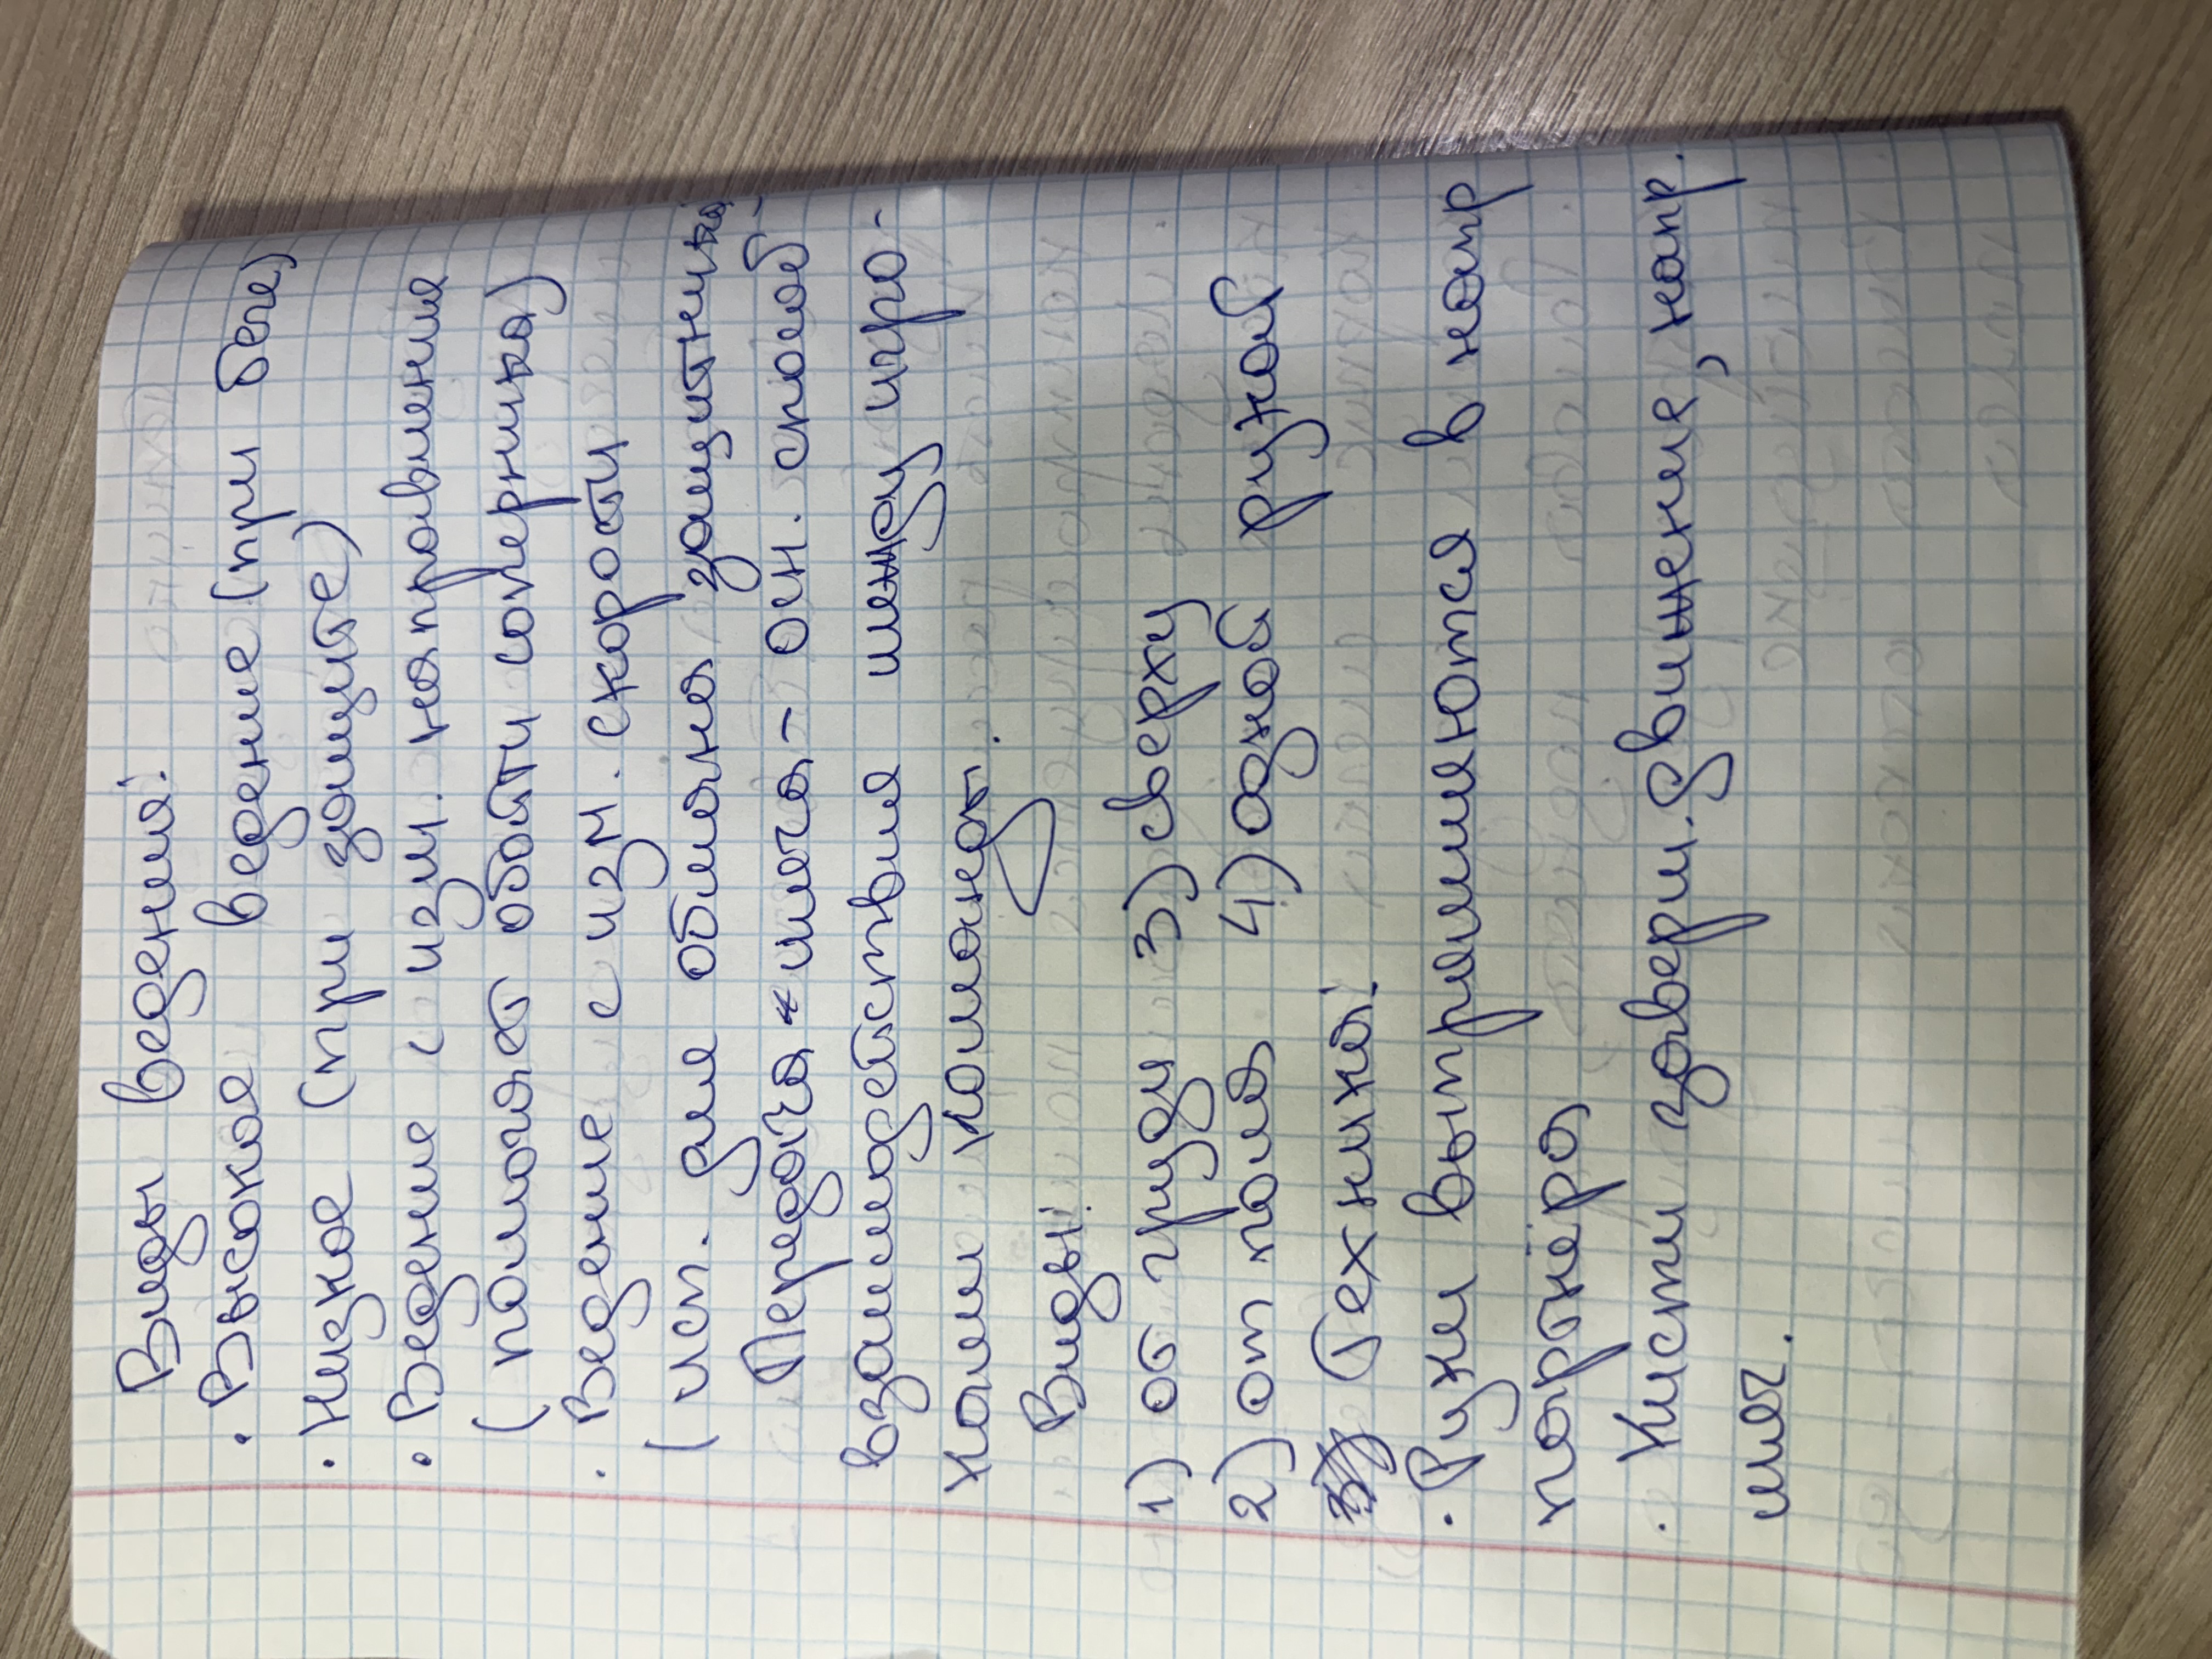 Виды ведения:
· Высокое ведение (при беге)
· Низкое (при защите)
· Ведение с изм. направления
(помогает обойти соперника)
· Ведение с изм. скорости
(исп. для обмана защитника
Передача мяча - осн. способ
взаимодействия между игро-
ками команды.
Виды:
1) от груди 3) сверху
2) от пола 4) одной рукой
Техника:
· Руки выпрямляются в напр
партнёра
· Кисти заверш. движение, напр.
мяч.